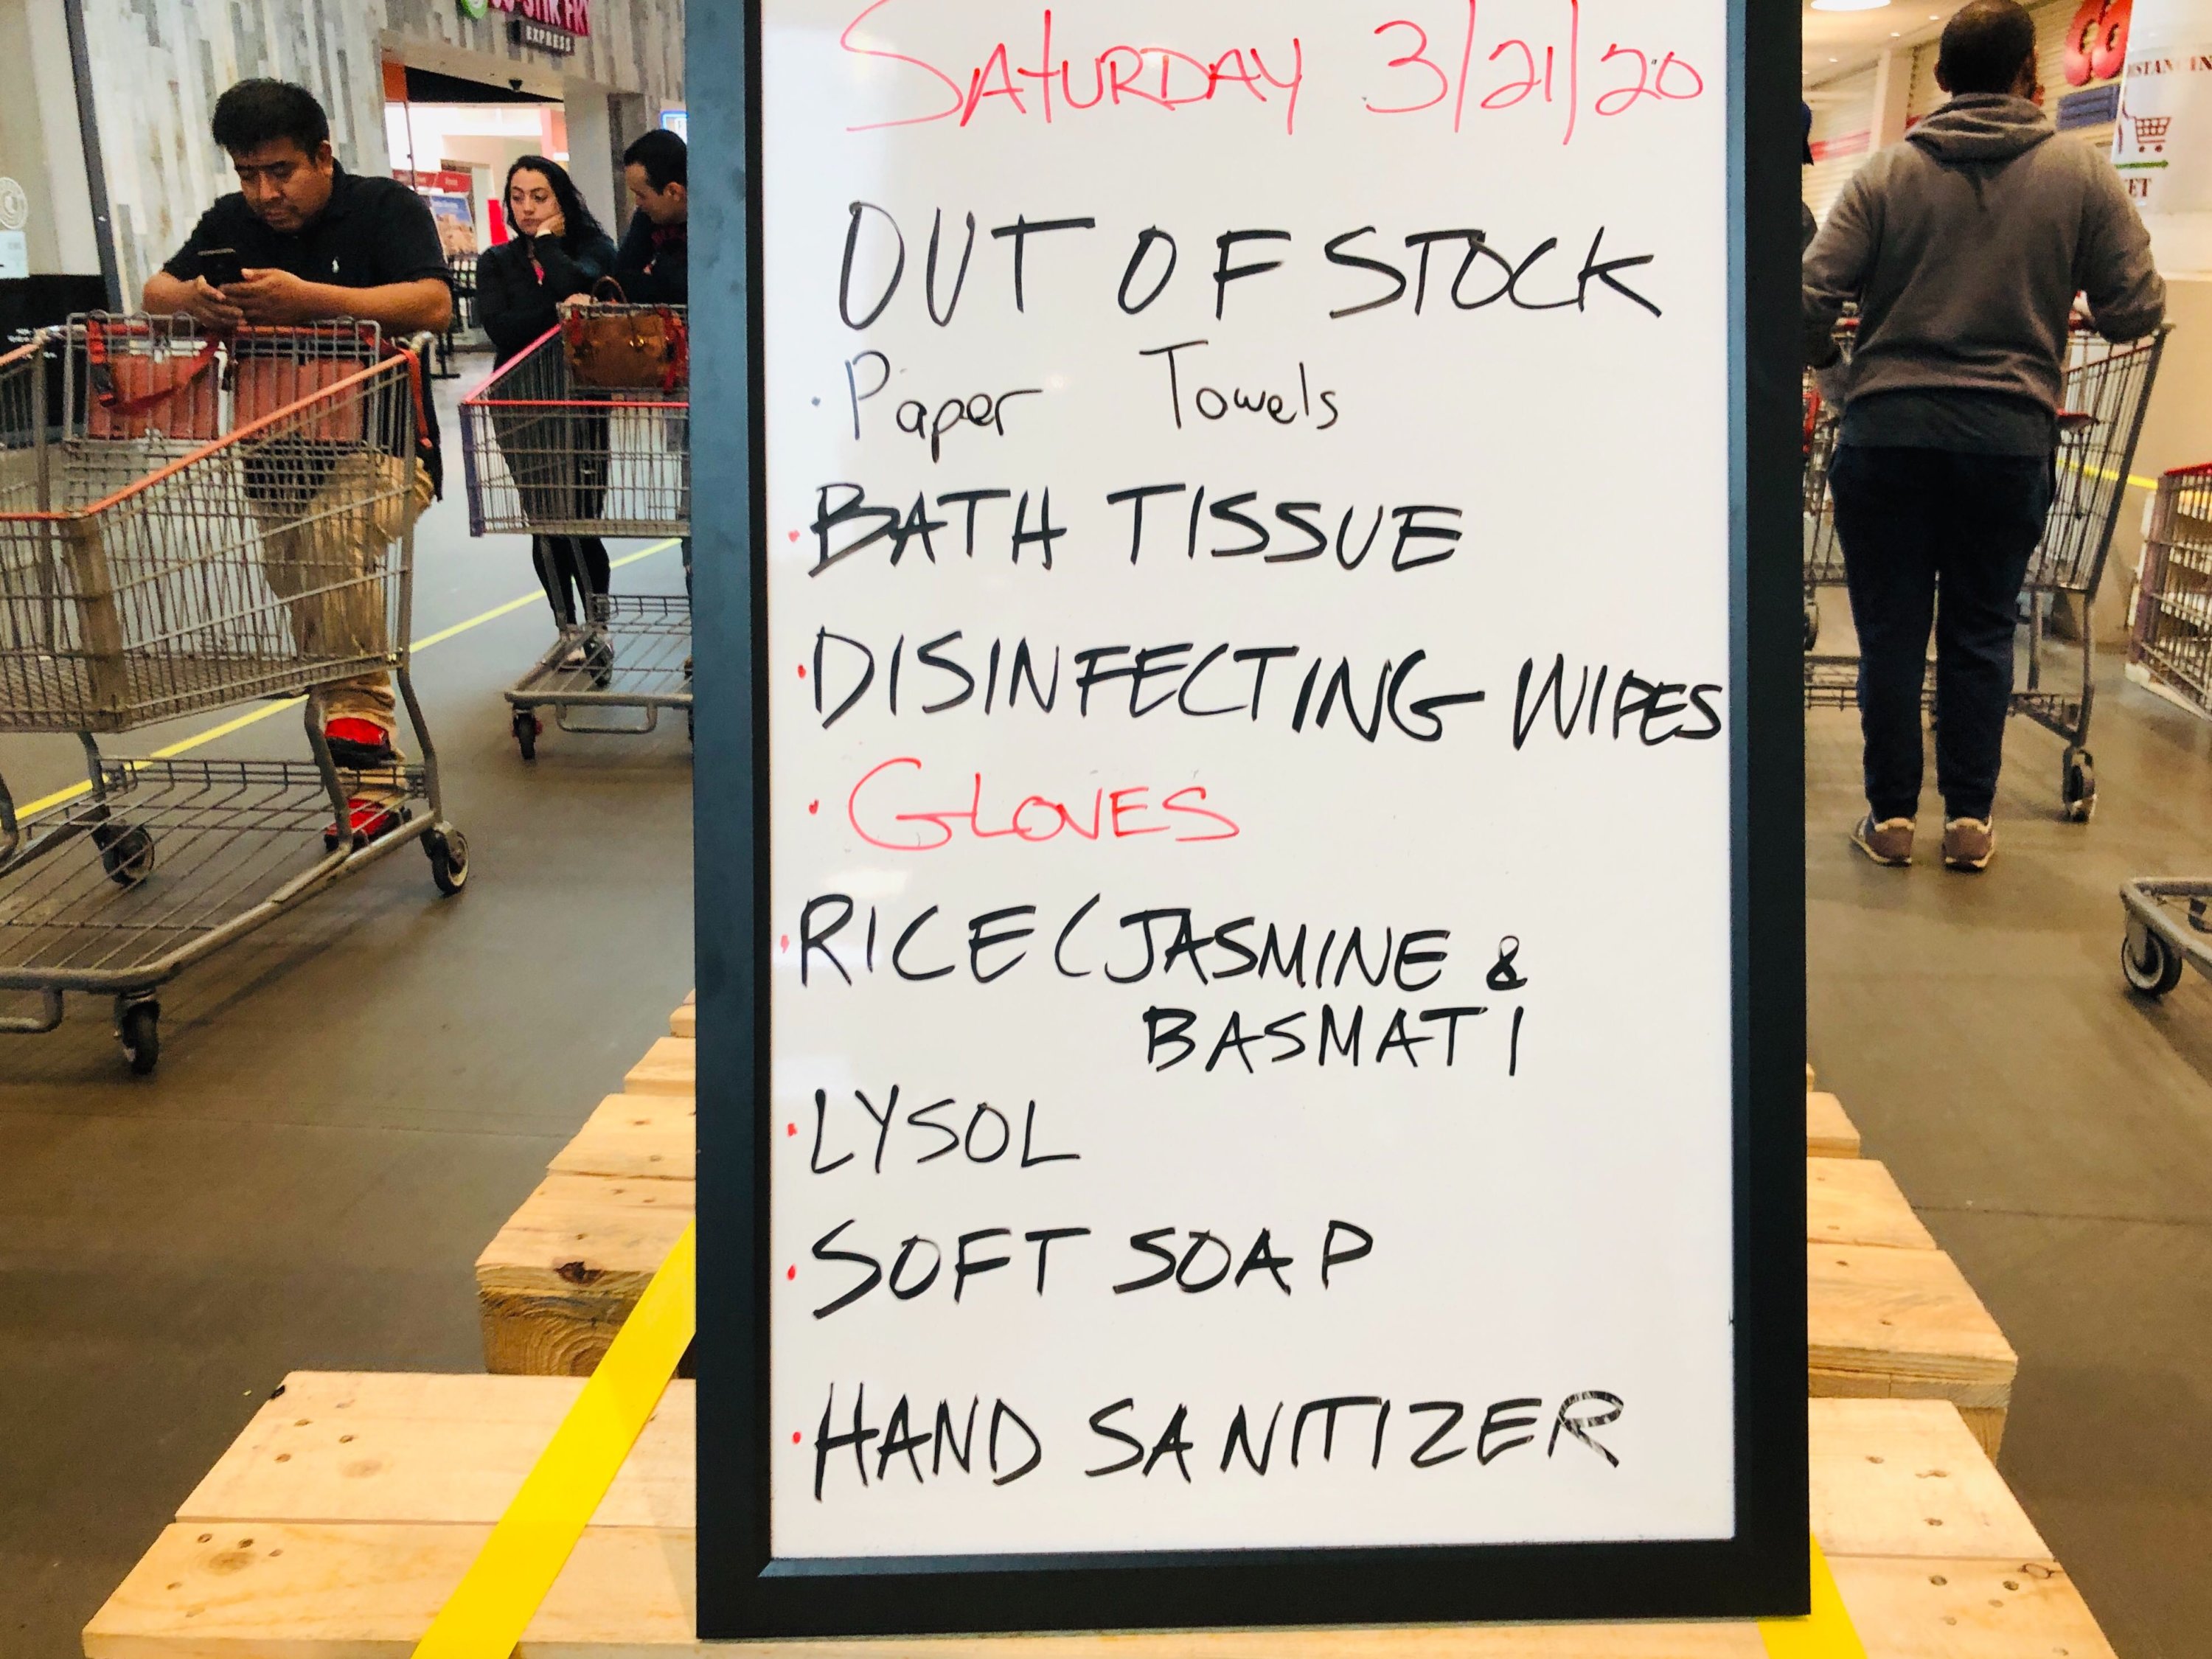 EXPRESS
SATURDAY 3/21/20
OUT OF STOCK
· Paper Towels
· BATH TISSUE
· DISINFECTING WIPES
· GLOVES
· RICE (JASMINE &
BASMATI
· LYSOL
· SOFT SOAP
· HAND SANITIZER